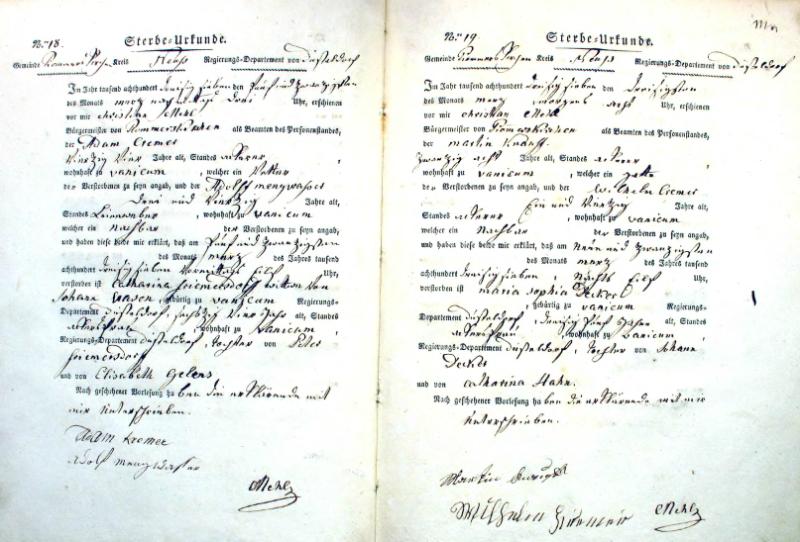 No. 18.
Sterbe-Urkunde.
Gemeinde Rommerskirchen Kreis Neuss Regierungs-Departement von Düsseldorf
Im Jahr tausend achthundert dreisig sieben den fünf und zwanzigsten
des Monats merz nachmittags drei Uhr, erschienen
vor mir christian Mehl
Bürgermeister von Rommerskirchen als Beamten des Personenstandes,
der Adam Cremer
vierzig vier Jahre alt, Standes ackerer,
wohnhaft zu vanicum, welcher ein
der Verstorbenen zu seyn angab, und der Adolff mengwasser
drei und vierzig Jahre alt,
Standes Leineweber, wohnhaft zu vanicum
welcher ein Nachbar der Verstorbenen zu seyn angab,
und haben diese beide mir erklärt, daß am fünf und zwanzigsten
des Monats merz des Jahres tausend
achthundert dreisig sieben vormittags eilf Uhr,
verstorben ist catharina wittwe von
Johann gebürtig zu vanicum Regierungs-
Departement düsseldorf, sechszig vier Jahr alt, Standes
wohnhaft zu vanicum,
Regierungs-Departement düsseldorf, tochter von Peter
und von Elisabeth Gelens
Nach geschehener Vorlesung haben die erklärende mit
mir unterschrieben.
Adam Kremer
Adolf mengwasser
CMehl
No. 19.
Sterbe-Urkunde.
Gemeinde Rommerskirchen Kreis Neuss Regierungs-Departement von Düsseldorf
Im Jahr tausend achthundert dreisig sieben den dreisigsten
des Monats merz morgens acht Uhr, erschienen
vor mir christian Mehl
Bürgermeister von Rommerskirchen als Beamten des Personenstandes,
der martin
zwanzig acht Jahre alt, Standes ackerer,
wohnhaft zu vanicum, welcher ein gatte
der Verstorbenen zu seyn angab, und der Wilhelm Cremer
Ein und vierzig Jahre alt,
Standes ackerer, wohnhaft zu vanicum
welcher ein Nachbar der Verstorbenen zu seyn angab,
und haben diese beide mir erklärt, daß am Neun und zwanzigsten
des Monats merz des Jahres tausend
achthundert dreisig sieben, Nachts eilf Uhr,
verstorben ist maria sophia Decker
gebürtig zu vanicum Regierungs-
Departement düsseldorf, dreisig fünf Jahre alt, Standes
wohnhaft zu vanicum,
Regierungs-Departement düsseldorf, tochter von Johann
Decker
und von catharina Hahn.
Nach geschehener Vorlesung haben die erklärende mit mir
unterschrieben.
Martin
Wilhelm CMehl